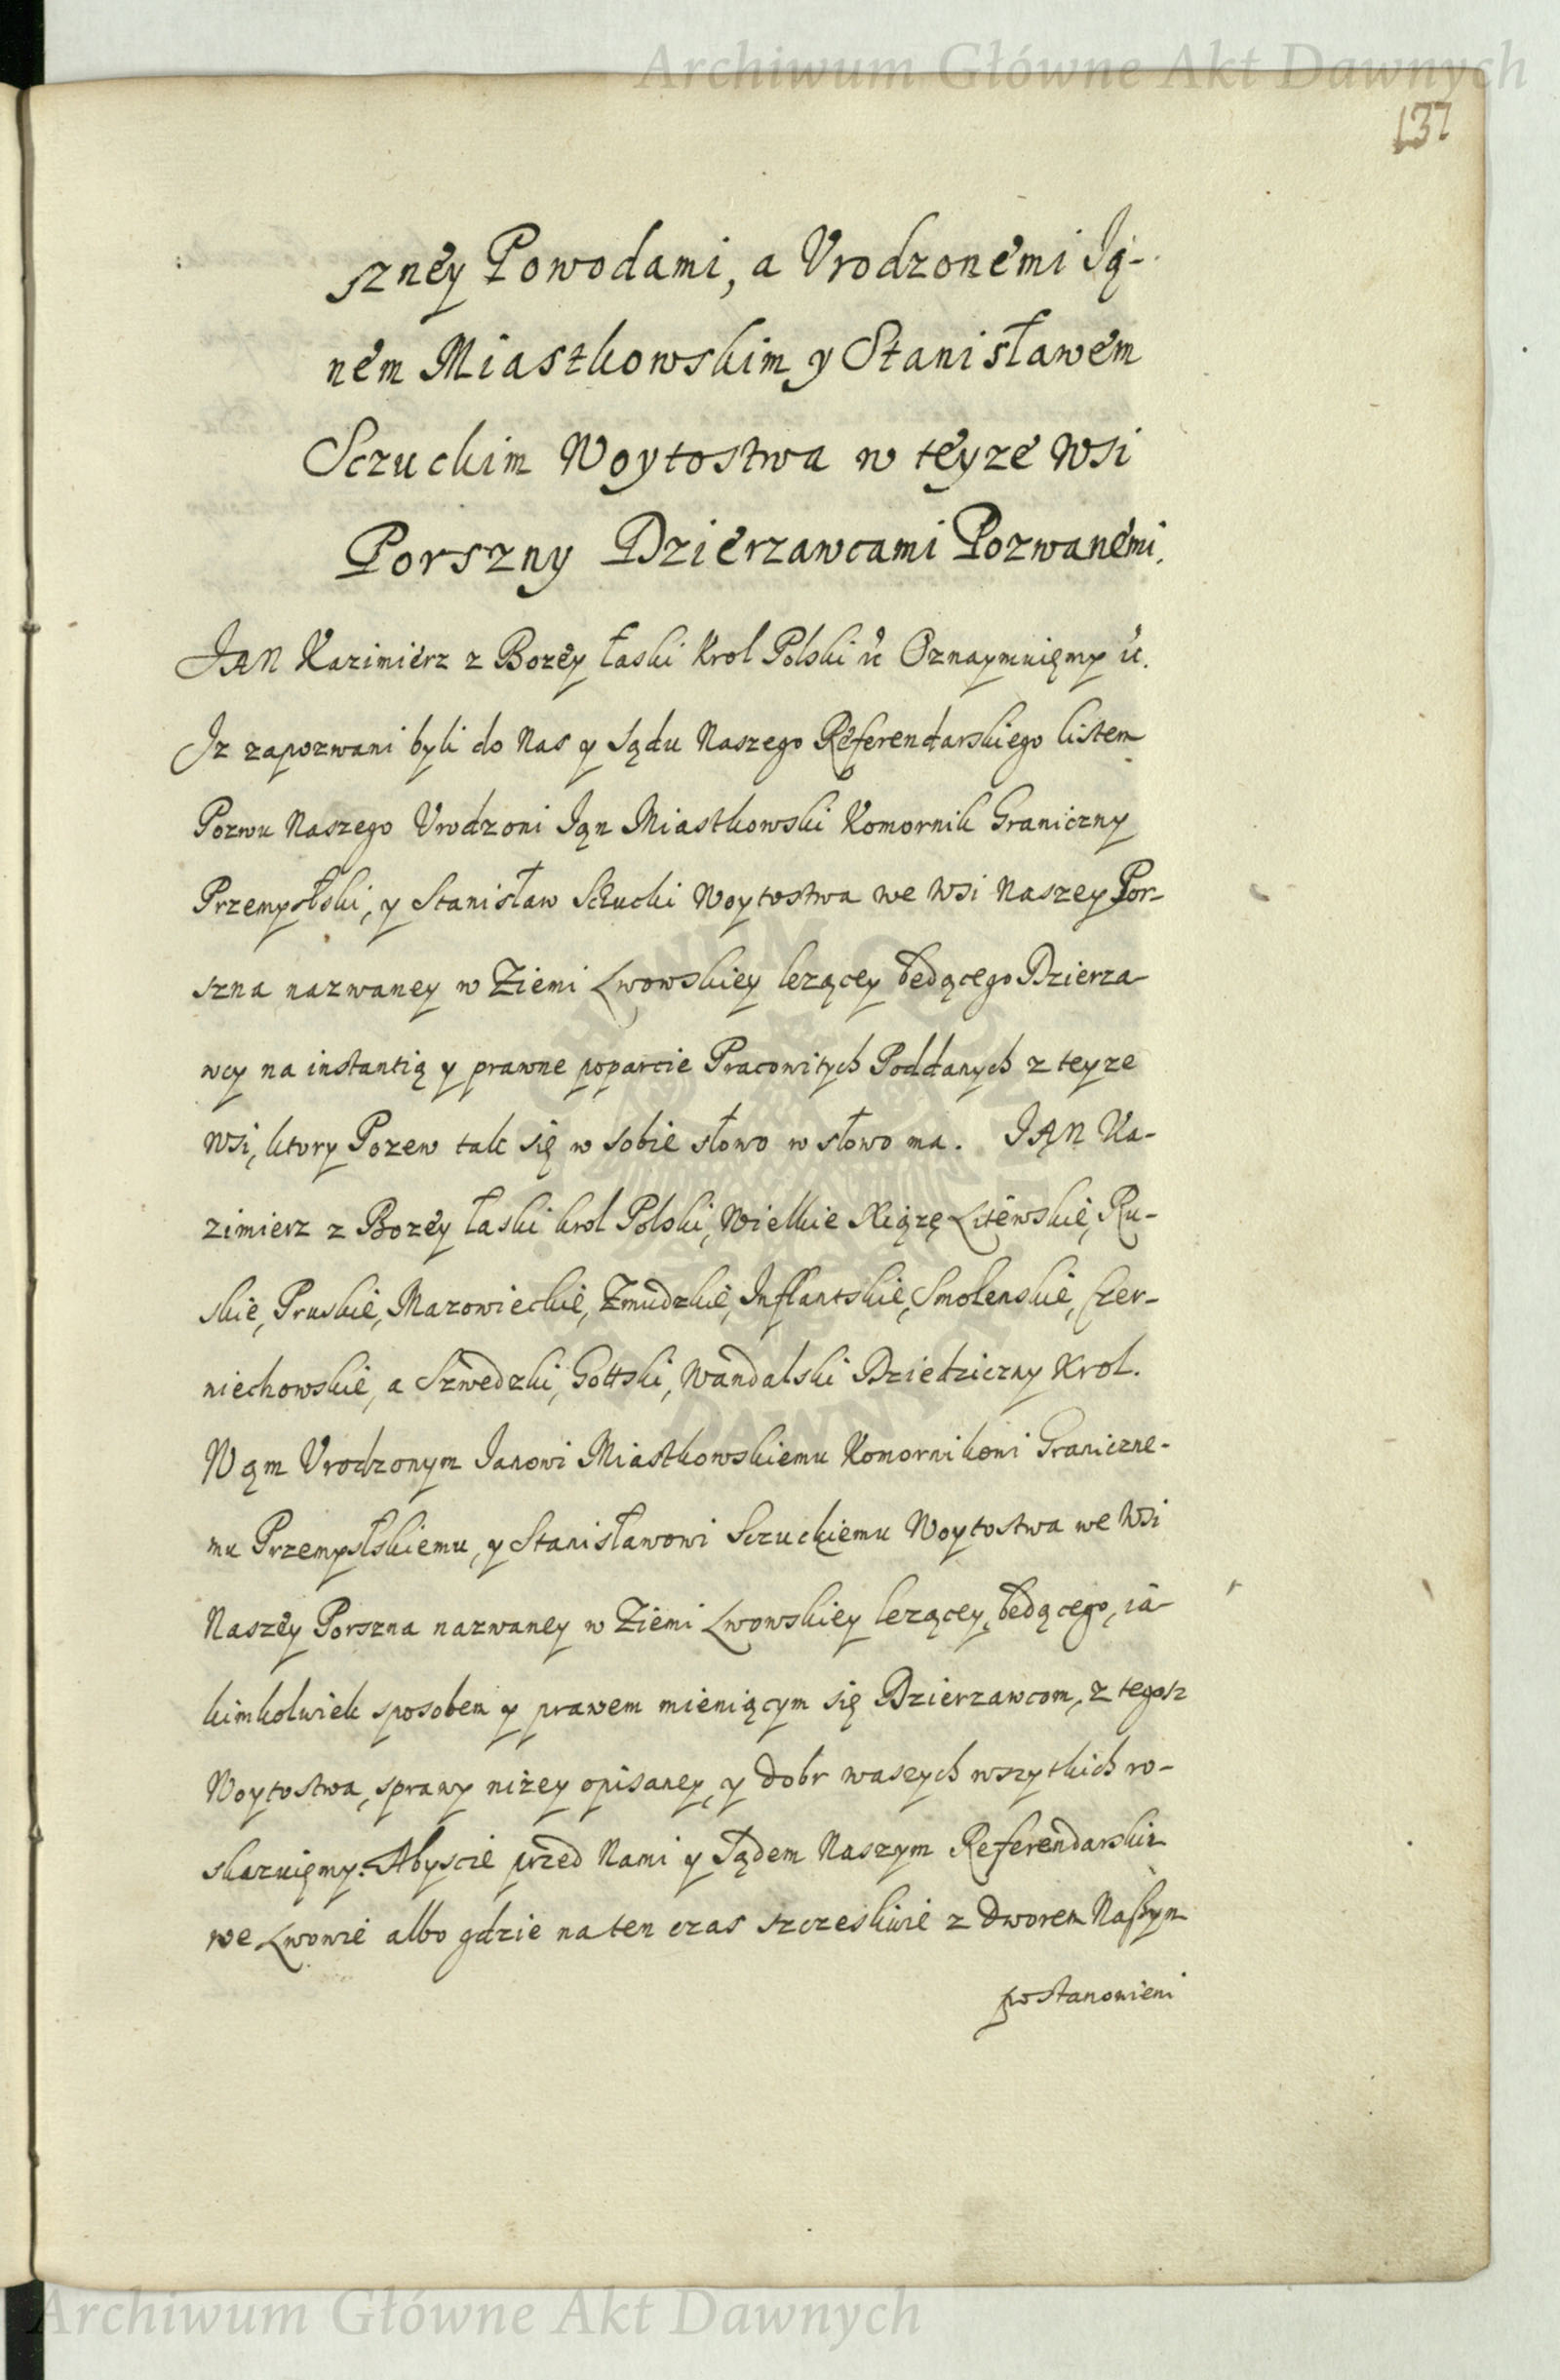 Archiwum Główne Akt Dawnych
137
szney Powodami, a Vrodzonemi Ją-
nem Miastkowskim y Stanisławem
Sczuckim Woytostwa w teyze Wsi
Porszny Dzierzawcami Pozwanemi.
JAN Kazimierz z Bozey łaski Krol Polski &c Oznaymuięmy &c.
Iz zapozwani byli do Nas y Sądu Naszego Referendarskiego listem
Pozwu Naszego Vrodzoni Ian Miastkowski Komornik Graniczny
Przemyslski, y Stanisław Sczucki Woytostwa we Wsi Naszey Por-
szna nazwaney w Ziemi Lwowskiey lezącey będącego Dzierza-
wcy na instantią y prawne poparcie Pracowitych Poddanych z teyze
Wsi, ktory Pozew tak się w sobie słowo w słowo ma. JAN Ka-
zimierz z Bozey łaski krol Polski, Wielkie Xiązę Litewskie, Ru-
skie, Pruskie, Mazowieckie, Zmudzkie, Inflantskie, Smolenskie, Czer-
niechowskie, a Szwedzki, Gottski, Wandalski Dziedziczny Krol.
Wąm Vrodzonym Janowi Miastkowskiemu Komornikowi Graniczne-
mu Przemyslskiemu, y Stanisławowi Sczuckiemu Woytostwa we Wsi
Naszey Porszna nazwaney w Ziemi Lwowskiey lezącey, będącego, ia-
kimkolwiek sposobem y prawem mieniącym się Dzierzawcom, z tegosz
Woytostwa, sprawy nizey opisaney, y dobr waseych wszytkich ro-
skazuięmy: Abyscie przed Nami y Sądem Naszym Referendarskim
we Lwowie albo gdzie na ten czas szczesliwie z Dworem Naszym
postanowieni
Archiwum Główne Akt Dawnych